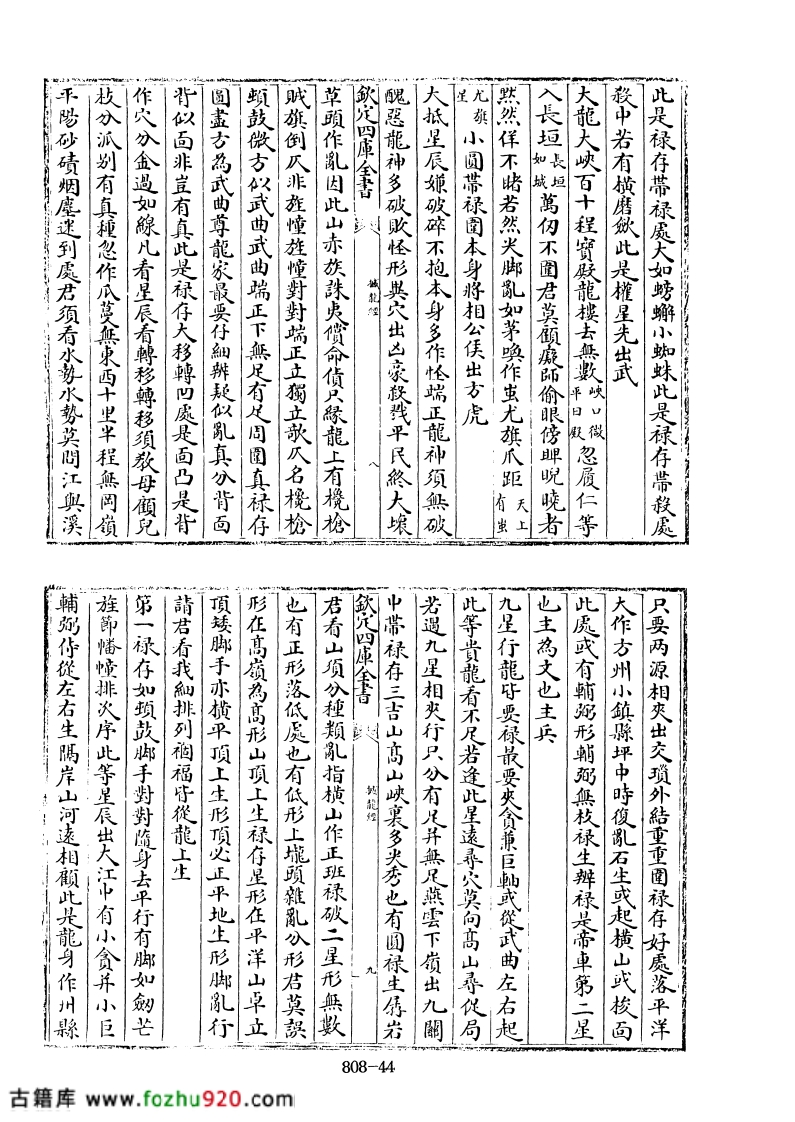 此是禄存帶禄處大如螃蠏小蜘蛛此是禄存帶殺處
殺中若有橫磨歛此是權星先出武
大龍大峽百十程寳殿龍樓去無數峽口微平日殿忽履仁等
入長垣長垣如城萬仞不圍君莫顧癡師偷眼傍睥睨曉者
黙然佯不睹若然尖脚亂如茅喚作蚩尤旗爪距天上有蚩
尤旗星小圓帶禄圍本身將相公侯出方虎
大抵星辰嫌破碎不抱本身多作怪端正龍神須無破
醜惡龍神多破敗怪形與穴出凶豪殺戮平民終大壞
欽定四庫全書 撼龍經 八
草頭作亂因此山赤族誅夷償命債只緣龍上有欃槍
賊旗倒仄非旌幢旌幢對對端正立獨立欹仄名欃槍
頓鼓微方似武曲武曲端正下無足有足周圍真禄存
圓盡方為武曲尊龍家最要仔細辨疑似亂真分背面
背似面非豈有真此是禄存大移轉凹處是面凸是背
作穴分金過如線凡看星辰看轉移轉移須教母顧兒
枝分派别有真種忽作瓜蔓無東西十里半程無岡嶺
平陽砂磧烟塵迷到處君須看水勢水勢莫問江與溪
只要两源相夾出交瑣外結重重圍禄存好處落平洋
大作方州小鎮縣坪中時復亂石生或起橫山或梭面
此處或有輔弼形輔弼無枝禄生辦禄是帝車第二星
也主為文也主兵
九星行龍皆要禄最要夾貪兼巨軸或從武曲左右起
此等貴龍看不足若逢此星遠尋穴莫向髙山尋促局
若遇九星相夾行只分有足并無足燕雲下嶺出九關
中帶禄存三吉山髙山峽裏多尖秀也有圓禄生孱岩
欽定四庫全書 撼龍經 九
君看山須分種類亂指橫山作正班禄破二星形無數
也有正形落低處也有低形上壠頭雜亂分形君莫誤
形在髙嶺為髙形山頂上生禄存星形在平洋山卓立
頂矮脚手亦橫平頂上生形頂必正平地生形脚亂行
請君看我細排列禍福皆從龍上生
第一禄存如頓鼓脚手對對隨身去平行有脚如劒芒
旌節幡幢排次序此等星辰出大江中有小貪并小巨
輔弼侍從左右生隔岸山河遠相顧此是龍身作州縣
808-44
古籍库 www.fozhu920.com